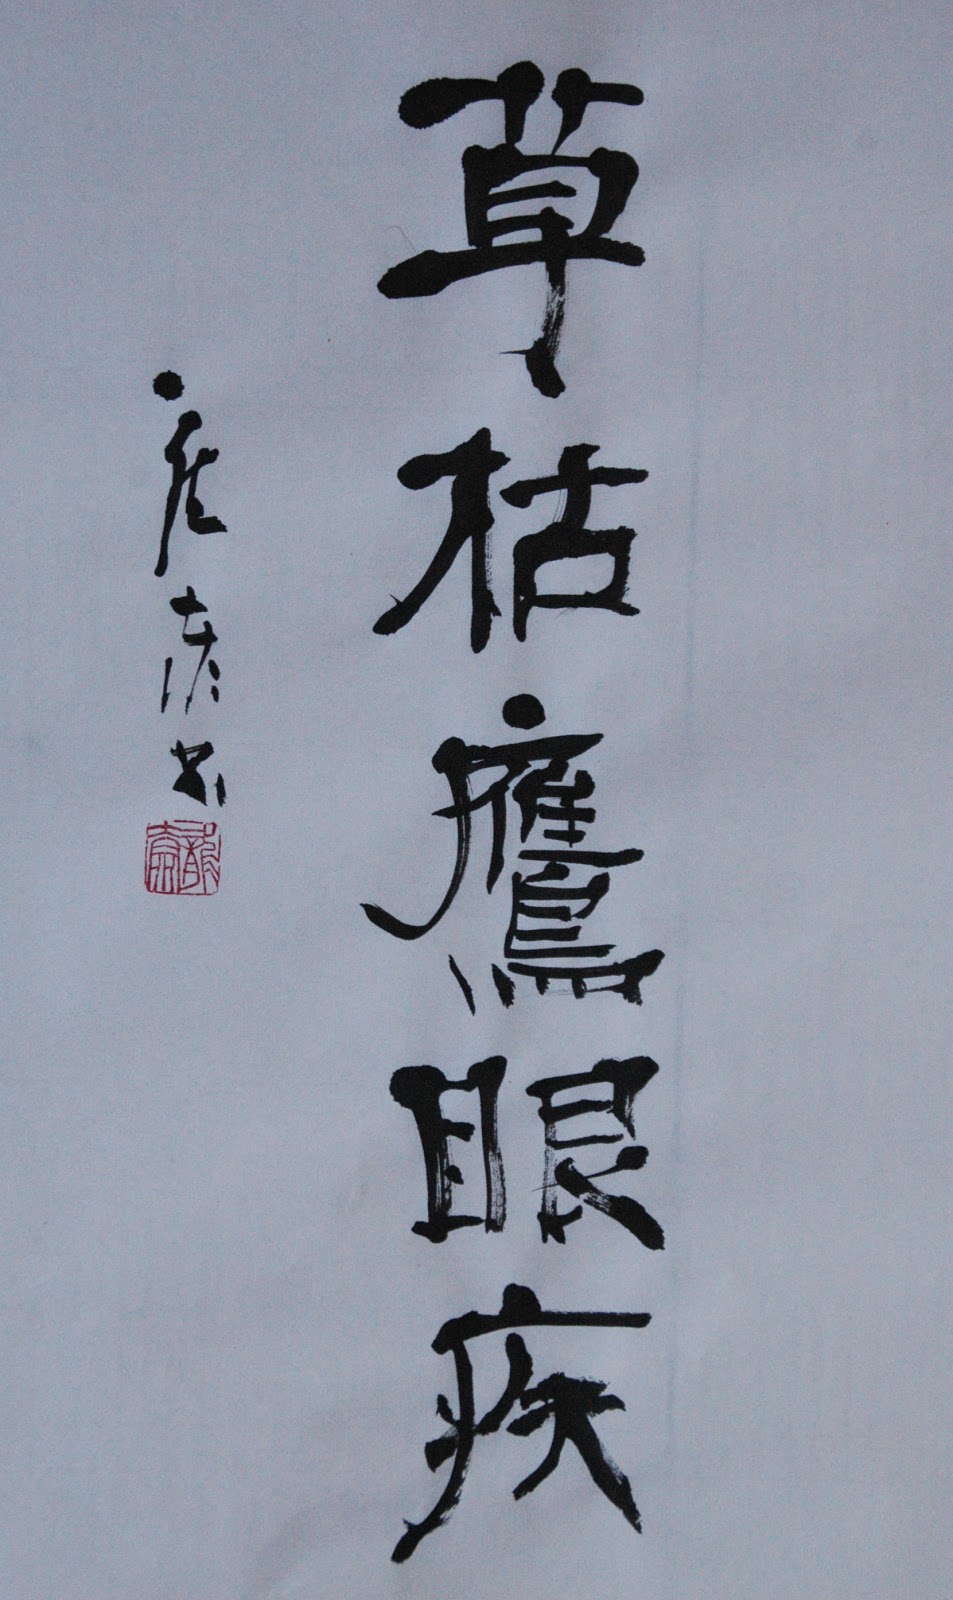 草枯鷹眼疾